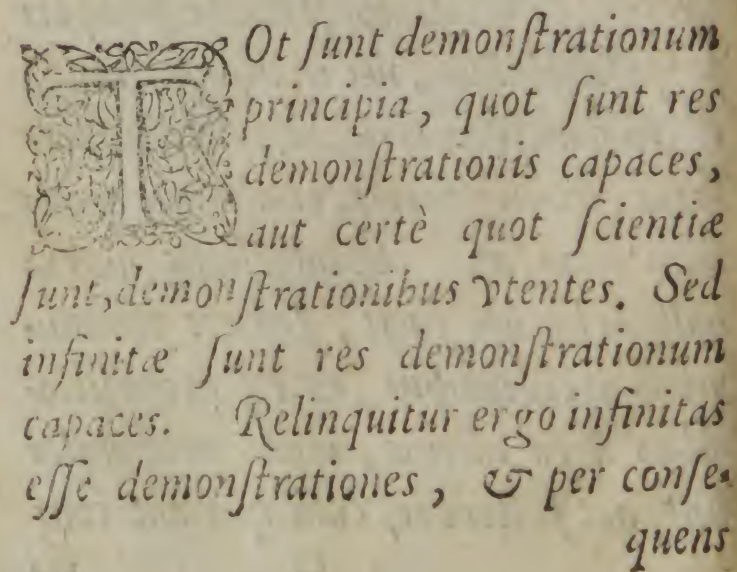 TOt ſunt demonſtrationum
principia, quot ſunt res
demonſtrationis capaces,
aut certè quot ſcientiæ
ſunt, demonſtrationibus vtentes. Sed
infinitæ ſunt res demonſtrationum
capaces. Relinquitur ergo infinitas
eſſe demonſtrationes, & per conſe-
quens